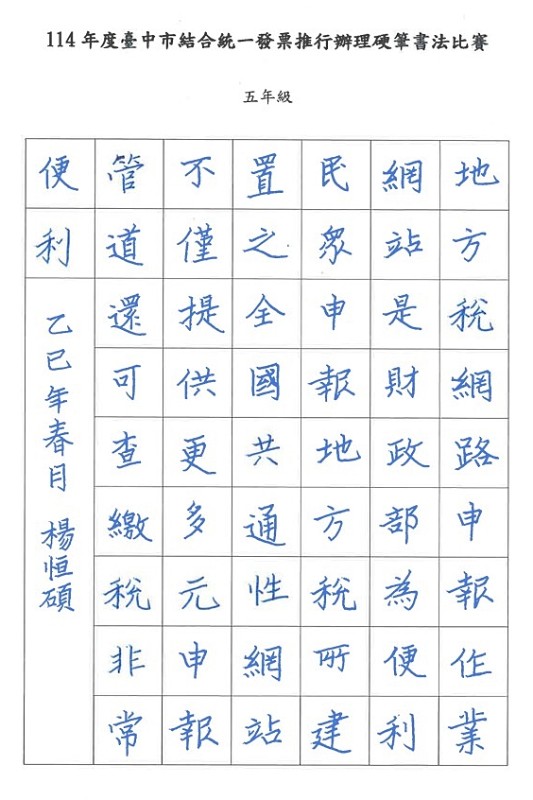 114年度臺中市結合統一發票推行辦理硬筆書法比賽
五年級
地方稅網路申報作業
網站是財政部為便利
民眾申報地方稅所建
置之全國共通性網站
不僅提供更多元申報
管道還可查繳稅非常
便利
乙巳年春月 楊恒碩